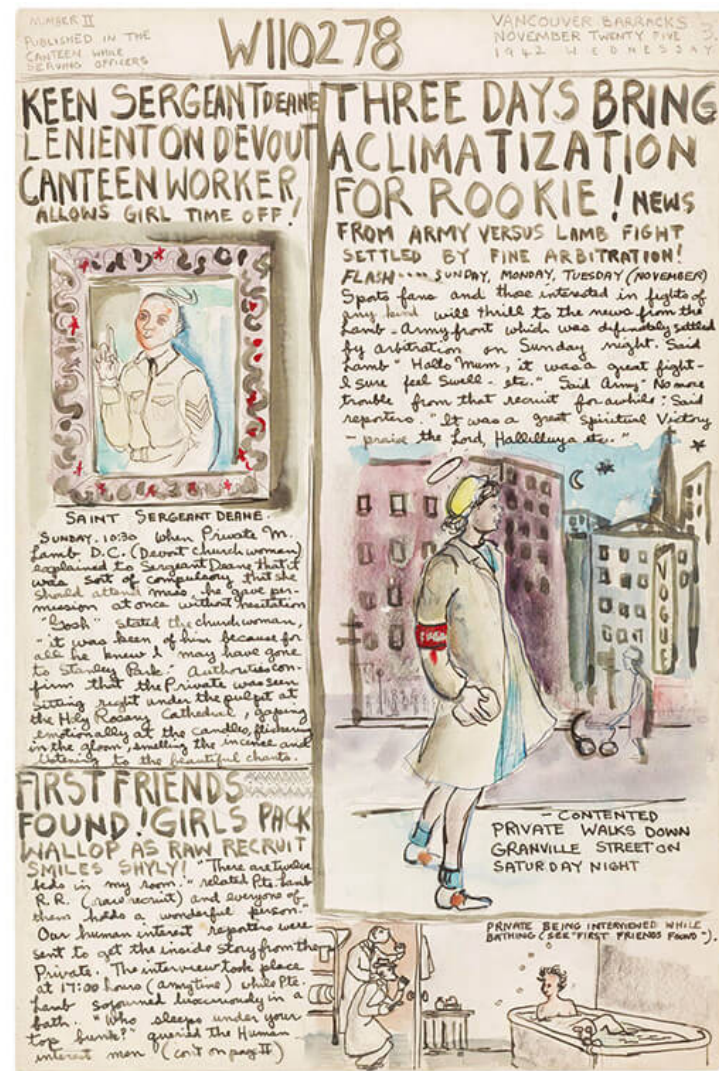 NUMBER II
PUBLISHED IN THE
CANTEEN WHILE
SERVING OFFICERS
W110278
VANCOUVER BARRACKS 3.
NOVEMBER TWENTY FIVE
1942 WEDNESDAY
KEEN SERGEANT DEANE
LENIENT ON DEVOUT
CANTEEN WORKER,
ALLOWS GIRL TIME OFF!
SAINT SERGEANT DEANE.
SUNDAY. 10:30 When Private M.
Lamb D.C. (Devout church woman)
explained to Sergeant Deane that it
was sort of compulsory that she
should attend mass, he gave per-
mission at once without hesitation
"Gosh" stated the churchwoman,
- it was keen of him because for
all he knew I may have gone
to Stanley Park." Authorities con-
firm that the Private was seen
sitting right under the pulpit at
the Holy Rosary Cathedral, gaping
emotionally at the candles, flickering
in the gloom, smelling the incence and
listening to the beautiful chants.
FIRST FRIENDS
FOUND! GIRLS PACK
WALLOP AS RAW RECRUIT
SMILES SHYLY! "There are twelve
beds in my room." related Pte. Lamb
R.R. (raw recruit) and everyone of
them holds a wonderful person."
Our human interest reporters were
sent to get the inside story from the
Private. The interview took place
at 17:00 hours (army time) while Pte.
Lamb sojourned luxuriously in a
bath. "Who sleeps under your
top bunk?" queried the Human
interest men (cont on page II)
THREE DAYS BRING
ACLIMATIZATION
FOR ROOKIE! NEWS
FROM ARMY VERSUS LAMB FIGHT
SETTLED BY FINE ARBITRATION!
FLASH.... SUNDAY, MONDAY, TUESDAY (NOVEMBER)
Spots fans and those interested in fights of
any kind will thrill to the news from the
Lamb-Army front which was definately settled
by arbitration on Sunday night. Said
Lamb "Hallo Mum, it was a great fight-
I sure feel swell - etc." Said Army- No more
trouble from that recruit for awhile: Said
reporters. "It was a great Spiritual Victory
- praise the Lord, Hallilluya etc."
VOGUE
- CONTENTED
PRIVATE WALKS DOWN
GRANVILLE STREET ON
SATURDAY NIGHT
PRIVATE BEING INTERVIEWED WHILE
BATHING (SEE "FIRST FRIENDS FOUND"-).